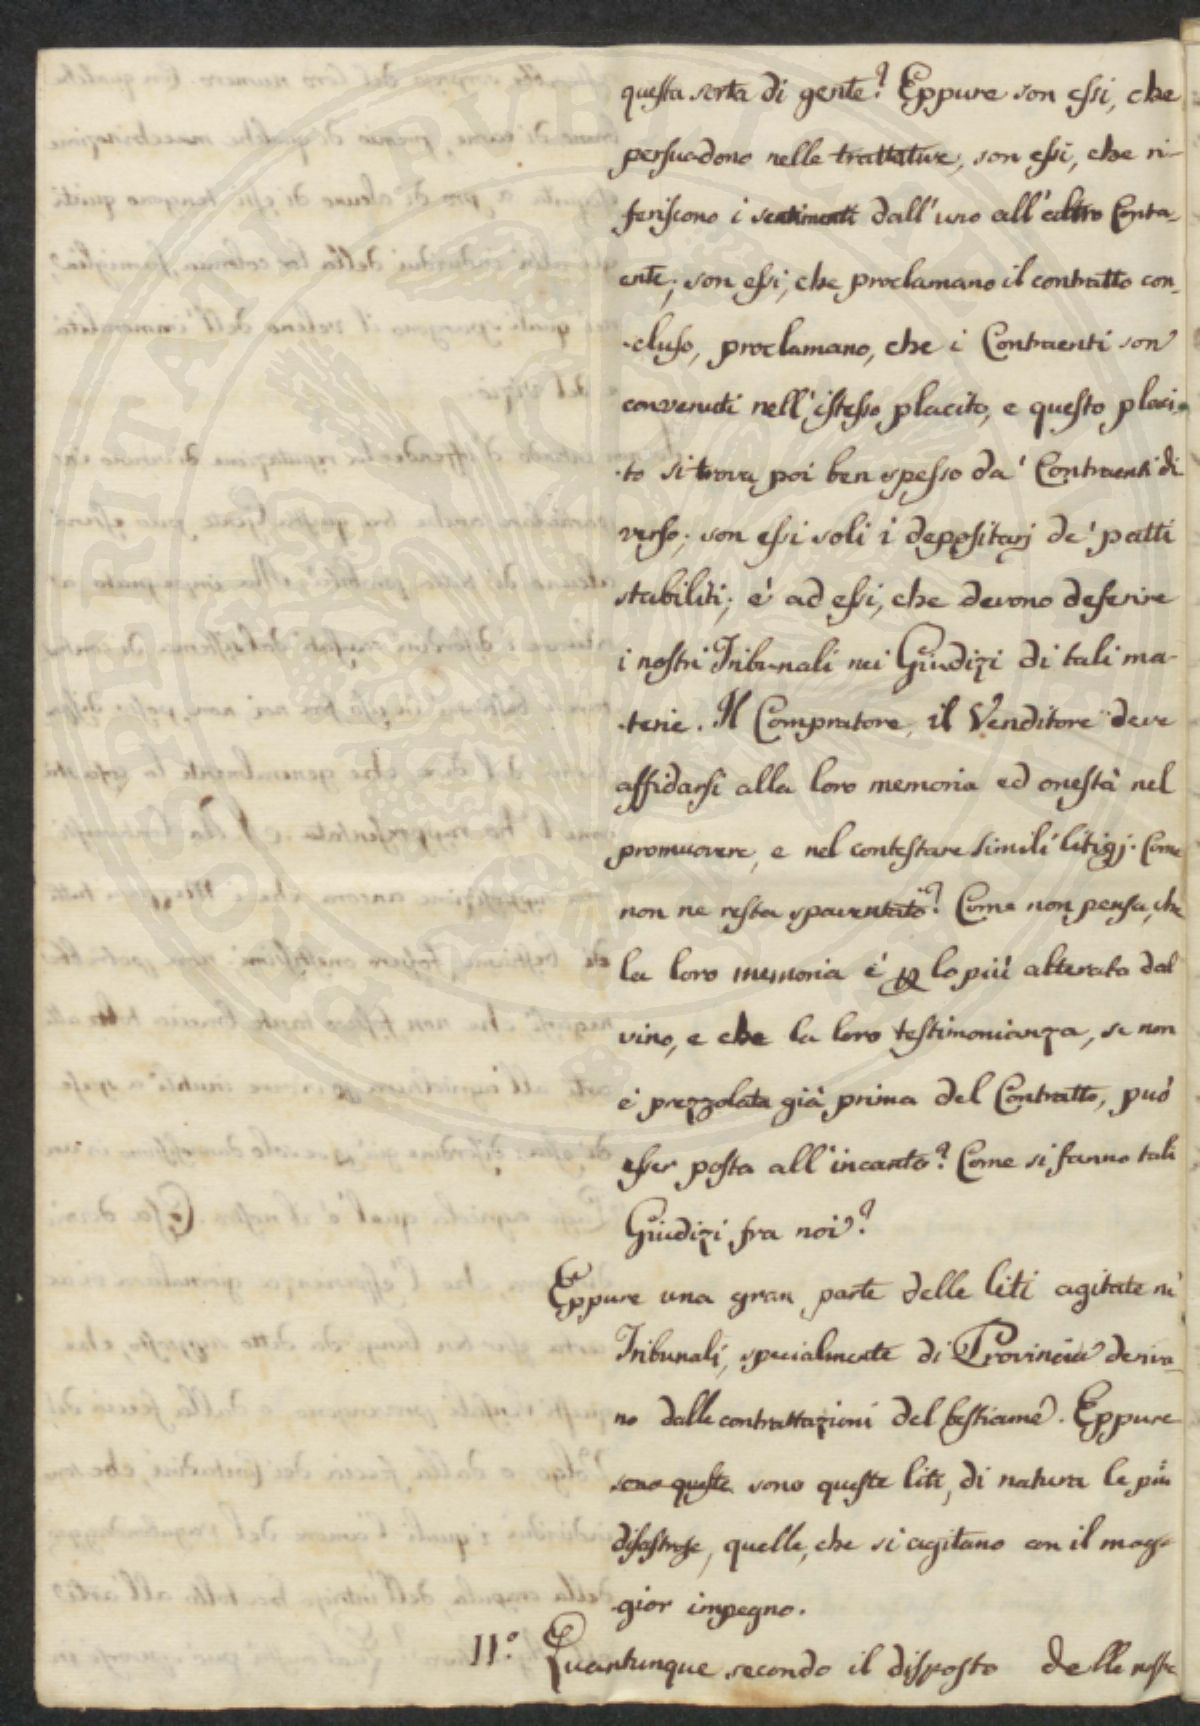 questa sorta di gente? Eppure son essi, che
persuadono nelle trattative, son essi, che ri-
feriscono i sentimenti dall'uno all'altro Contra-
ente; son essi, che proclamano il contratto con-
-cluso, proclamano, che i Contraenti son
convenuti nell'istesso placito, e questo placi-
-to si trova poi ben spesso da' Contraenti di
verso; son essi soli i depositarj de' patti
stabiliti; è ad essi, che devono deferire
i nostri Tribunali nei Giudizi di tali ma-
-terie. Il Compratore, il Venditore deve
affidarsi alla loro memoria ed onestà nel
promuovere, e nel contestare simili litigj. Come
non ne resta spaventato? Come non pensa, che
la loro memoria è p lo più alterata dal
vino, e che la loro testimonianza, se non
è prezzolata già prima del Contratto, può
esser posta all'incanto? Come si fanno tali
Giudizi fra noi?
Eppure una gran parte delle liti agitate ne'
Tribunali, specialmente di Provincia deriva-
no dalle contrattazioni del bestiame. Eppure
sono queste sono queste liti, di natura le più
disastrose, quelle, che si agitano con il mag-
gior impegno.
II.° Quantunque secondo il disposto delle nostre